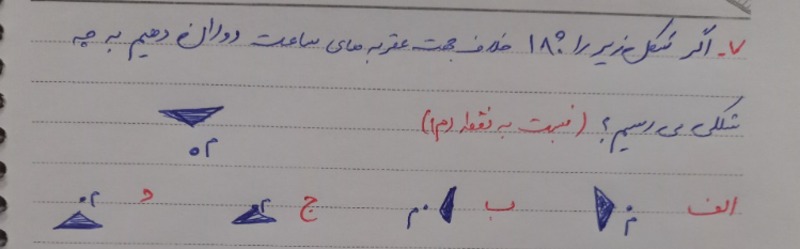 ۷- اگر شکل زیر را ۱۸۰° خلاف جهت عقربه های ساعت دوران دهیم به چه
شکلی می رسیم؟ (نسبت به نقطه (م))
م
الف م ب م ج م د م